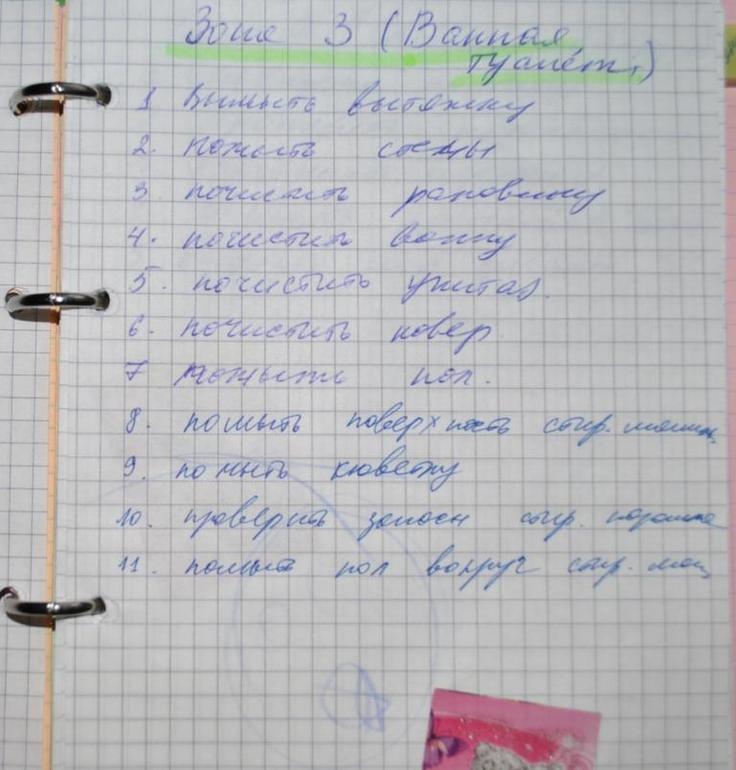 Зона 3 (Ванная
туалет.)
1 Вымыть вытяжку
2. помыть стены
3. почистить раковину
4. почистить ванну
5. почистить унитаз.
6. почистить ковер
7 помыть пол.
8. помыть поверхность стир. машин.
9. помыть кюветку
10. проверить запасы стир. порошка
11. помыть пол вокруг стир. маш